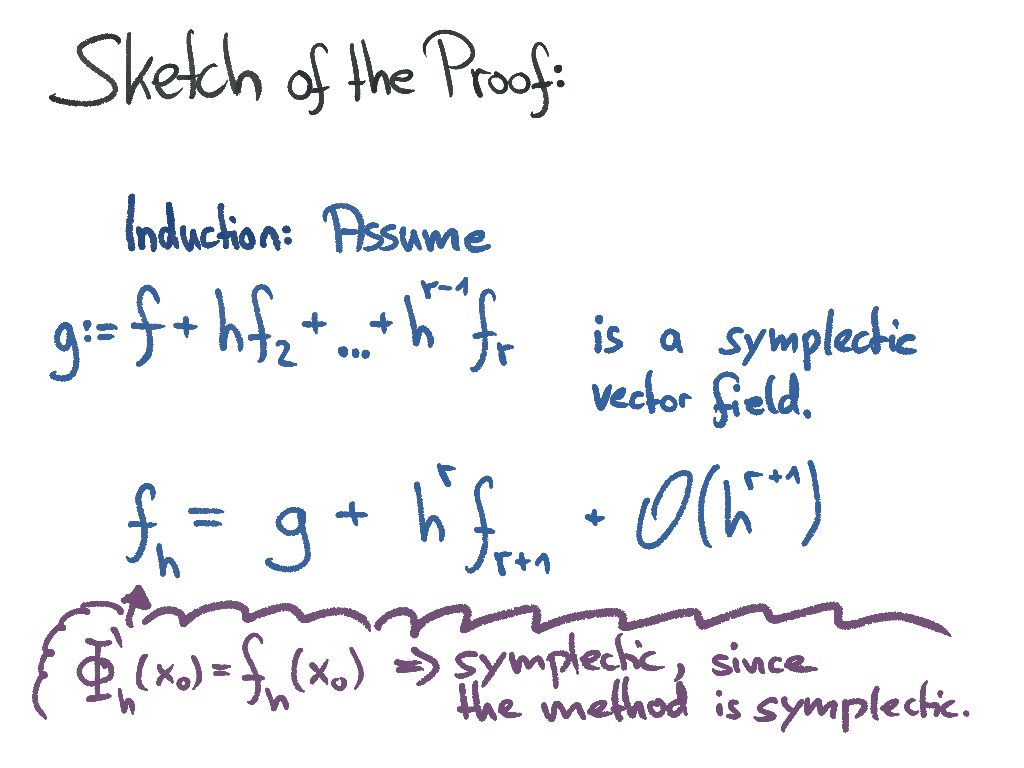 Sketch of the Proof:
Induction: Assume
g := f + hf₂ + ... + hʳ⁻¹ fᵣ is a symplectic
vector field.
fₕ = g + hʳ fᵣ₊₁ + O(hʳ⁺¹)
Φₕ'(x₀) = fₕ(x₀) ⇒ symplectic, since
the method is symplectic.